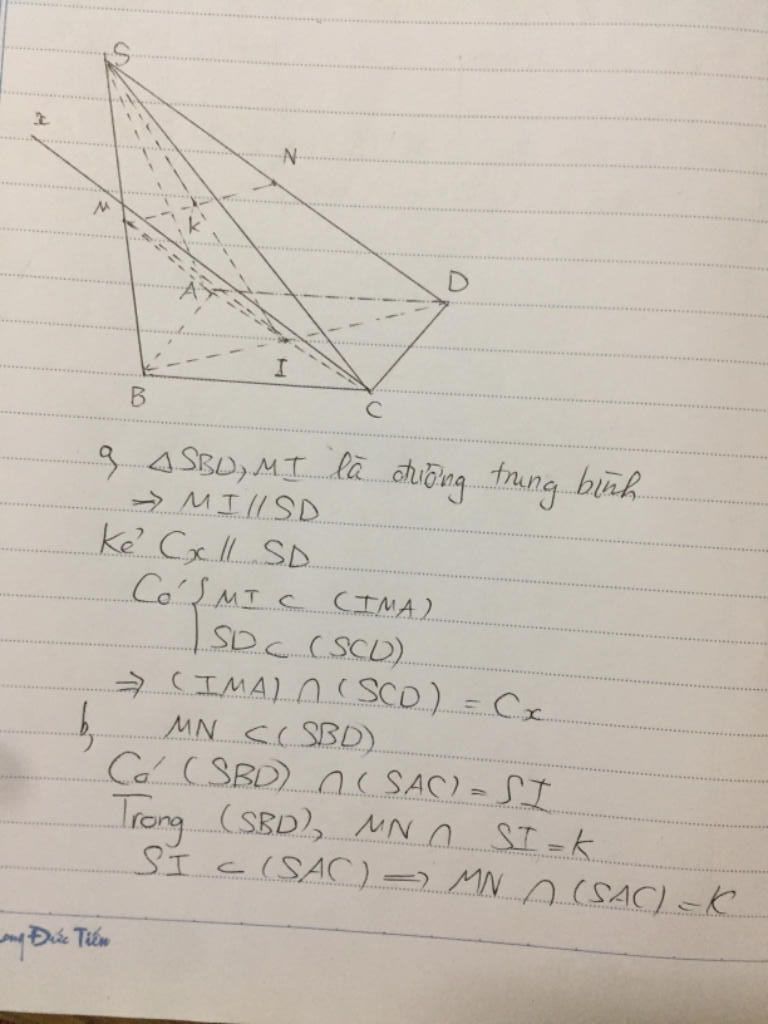 S
x
N
M
K
A
D
I
B
C
a, △SBD, MI là đường trung bình
⇒ MI // SD
Kẻ Cx // SD
Có { MI ⊂ (IMA)
SD ⊂ (SCD)
⇒ (IMA) ∩ (SCD) = Cx
b, MN ⊂ (SBD)
Có (SBD) ∩ (SAC) = SI
Trong (SBD), MN ∩ SI = K
SI ⊂ (SAC) ⇒ MN ∩ (SAC) = K
Đức Tiến